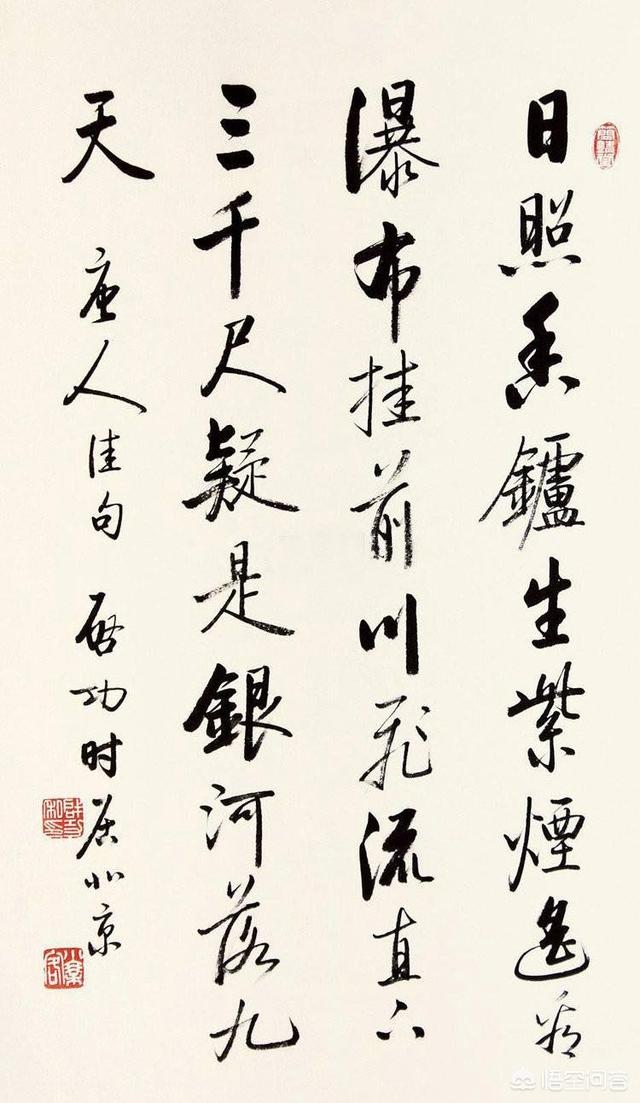 日照香鑪生紫煙遙看
瀑布挂前川飛流直下
三千尺疑是銀河落九
天 唐人佳句 啓功时居北京
悟空问答